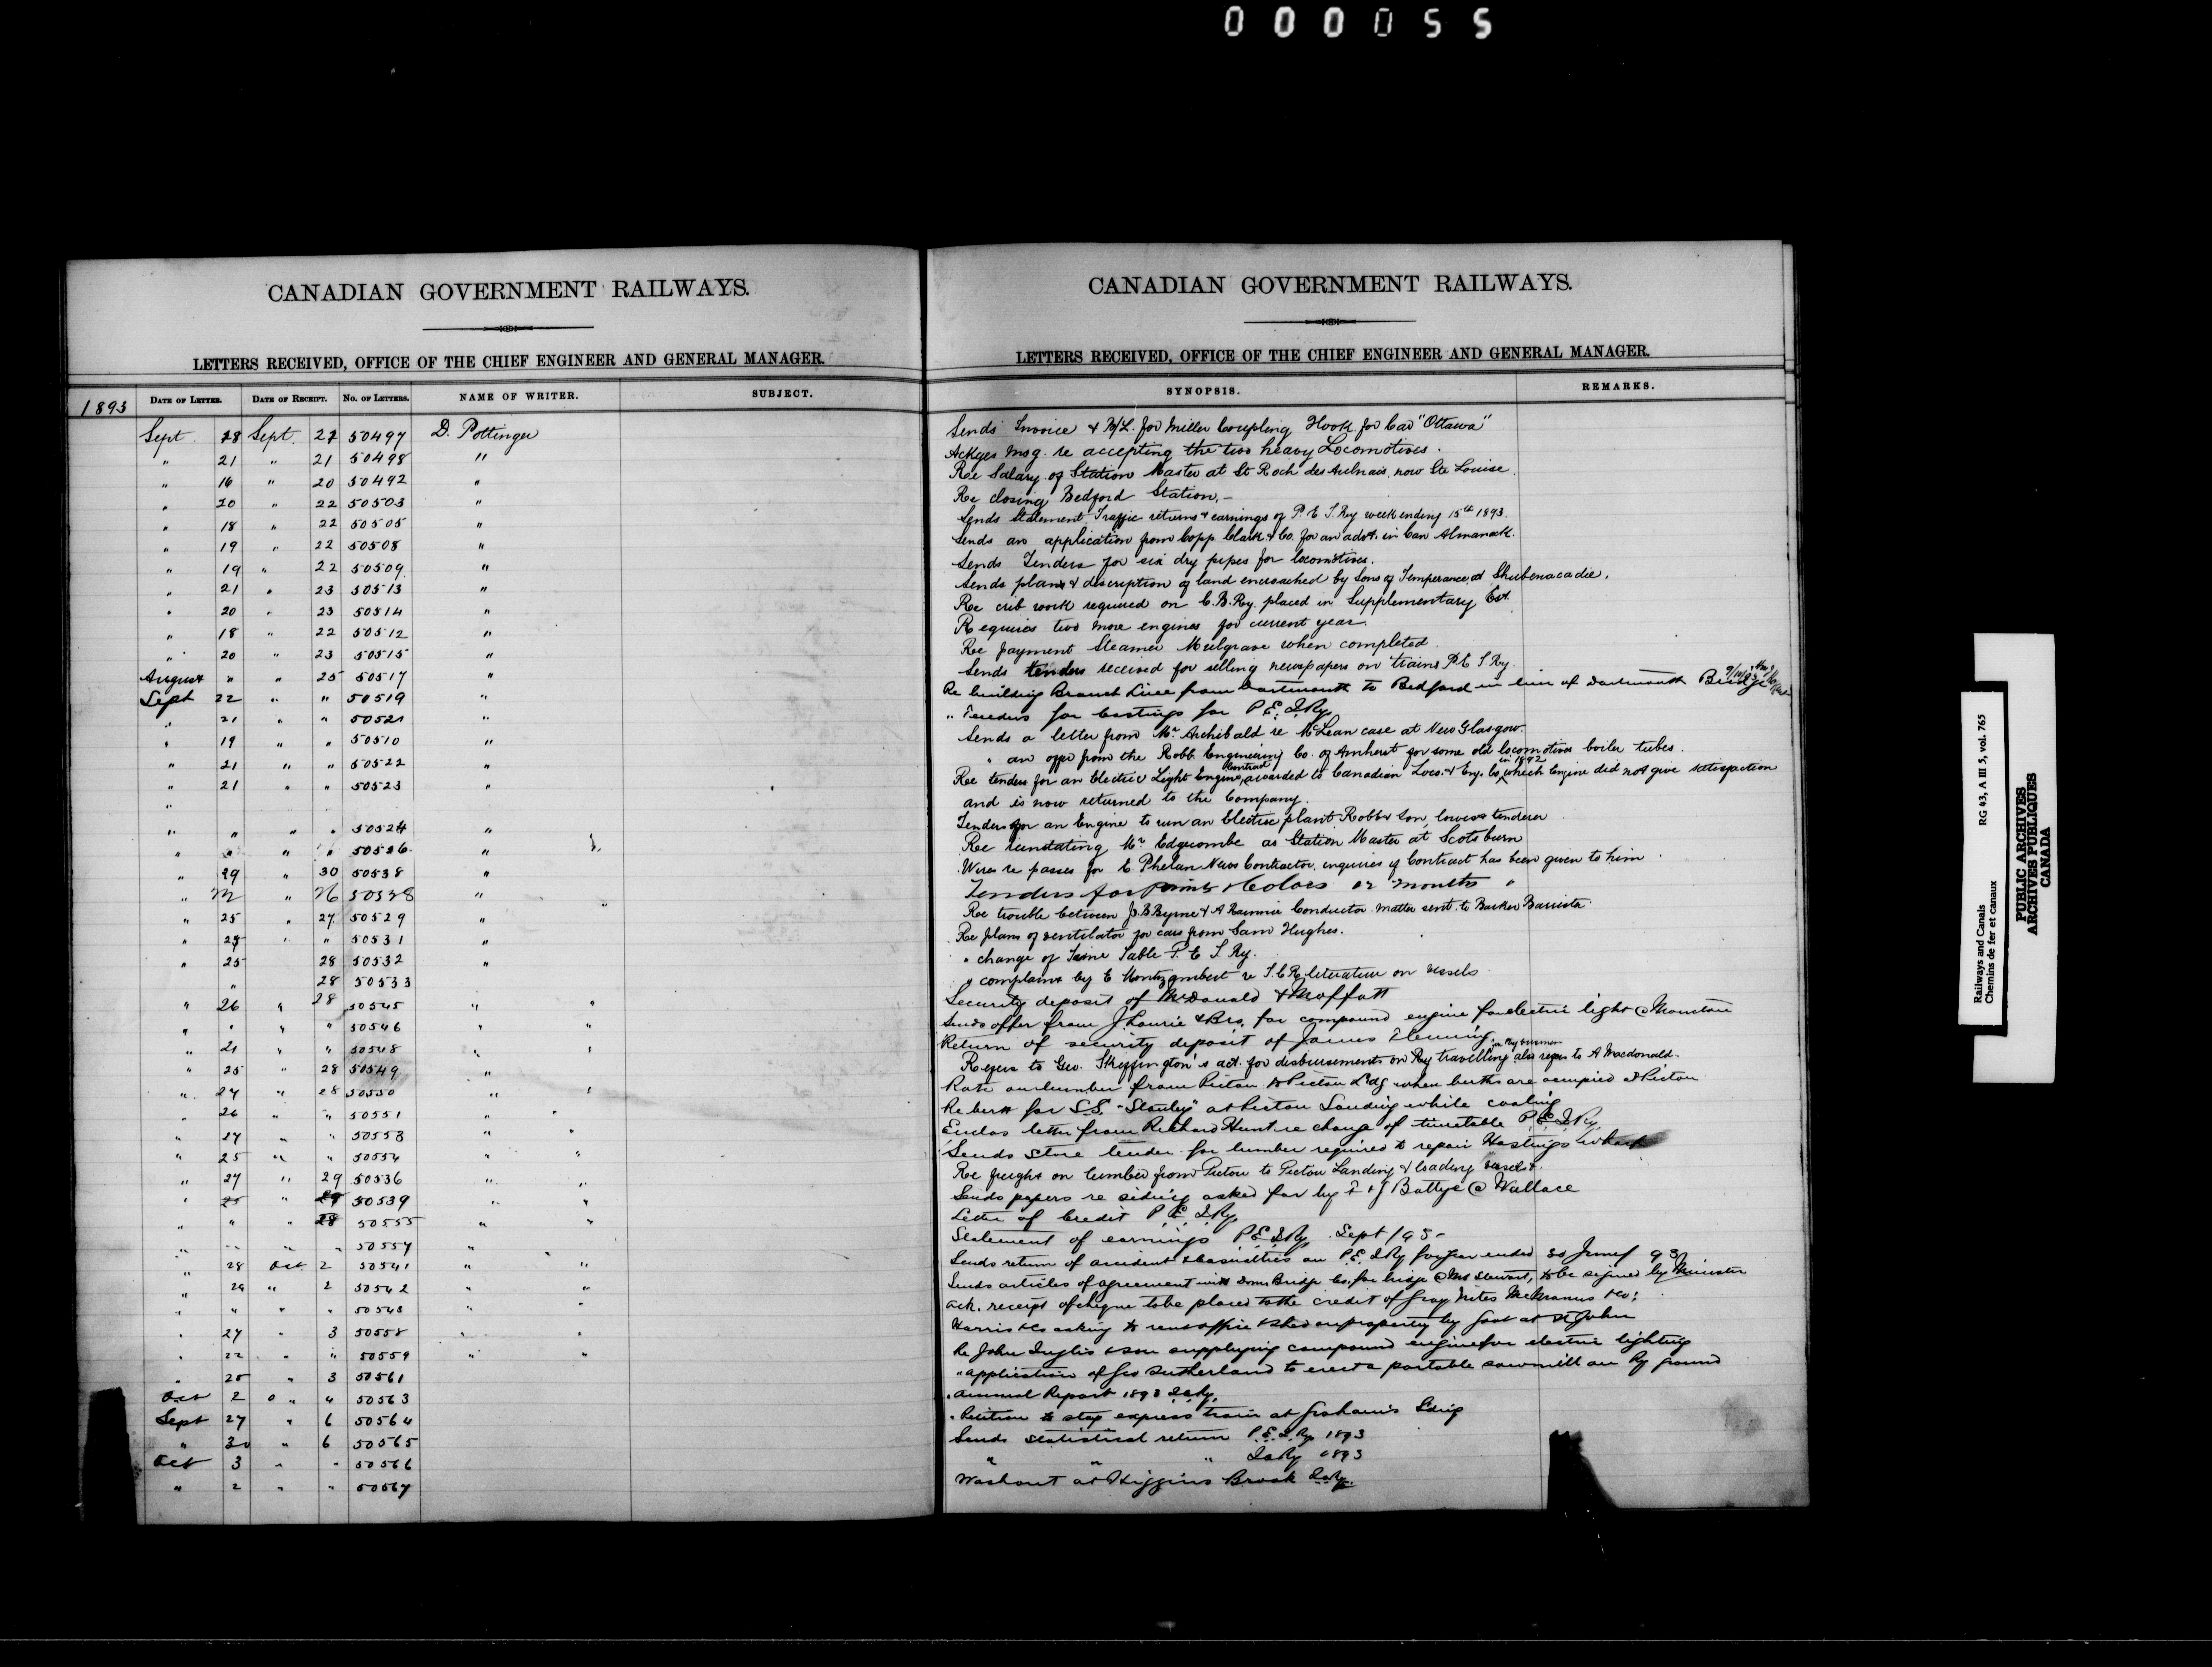 000055
CANADIAN GOVERNMENT RAILWAYS.
LETTERS RECEIVED, OFFICE OF THE CHIEF ENGINEER AND GENERAL MANAGER.
1893 DATE OF LETTER. DATE OF RECEIPT. No. OF LETTERS. NAME OF WRITER. SUBJECT.
Sept. 28 Sept. 22 50497 D. Pottinger
" 21 " 21 50498 "
" 16 " 20 50492 "
" 20 " 22 50503 "
" 18 " 22 50505 "
" 19 " 22 50508 "
" 19 " 22 50509 "
" 21 " 23 50513 "
" 20 " 23 50514 "
" 18 " 22 50512 "
" 20 " 23 50515 "
August " " 25 50517 "
Sept 22 " " 50519 "
" 21 " " 50521 "
" 19 " " 50510 "
" 21 " " 50522 "
" 21 " " 50523 "
"
" " " " 50524 "
" " " " 50526 "
" 29 " 30 50538 "
" 22 " 26 50528 "
" 25 " 27 50529 "
" 25 " " 50531 "
" 25 28 50532 "
" 28 50533
" 26 " 28 50545 " "
" " " " 50546 " "
" 21 " " 50548 " "
" 25 " 28 50549 "
" 27 " 28 50550 " "
" 26 " " 50551 " "
" 27 " " 50553 " "
" 25 " " 50554 " "
" 27 " 29 50536 " "
" 25 " 29 50539 " "
" " " 28 50555 " "
" " " " 50557 " "
" 28 Oct. 2 50541 " "
" 29 " 2 50542 " "
" " " " 50543 " "
" 27 " 3 50558 " "
" 22 " " 50559 " "
" 25 " 3 50561
Oct 2 " 4 50563
Sept 27 " 6 50564
" 30 " 6 50565
Oct 3 " " 50566
" 2 " " 50567
CANADIAN GOVERNMENT RAILWAYS.
LETTERS RECEIVED, OFFICE OF THE CHIEF ENGINEER AND GENERAL MANAGER.
SYNOPSIS. REMARKS.
Sends Invoice & B/L. for Miller Coupling Hook for Car "Ottawa"
Ackges msg. re accepting the two heavy Locomotives.
Re Salary of Station Master at St Roch des Aulnais, now Ste Louise.
Re closing Bedford Station.
Sends Statement Traffic returns & earnings of P. E. I. Ry week ending 15th 1893.
Sends an application from Copp. Clark & Co. for an advt. in Can Almanack.
Sends Tenders for six dry pipes for locomotives.
Sends plans & description of land encroached by Sons of Temperance at Shubenacadie.
Re crib work required on C. B. Ry. placed in Supplementary Est.
Requires two more engines for current year.
Re payment Steamer Mulgrave when completed.
Sends tenders received for selling newspapers on trains P. E. I. Ry.
Re building Branch Line from Dartmouth to Bedford in lieu of Dartmouth Bridge
" Tenders for Castings for P.E.I.Ry.
Sends a letter from Mr. Archibald re McLean case at New Glasgow.
" an offer from the Robb Engineering Co. of Amherst for some old locomotives boiler tubes.
Re tenders for an Electric Light Engine, contract awarded to Canadian Loco. & Eng. Co. in 1892 which Engine did not give satisfaction
and is now returned to the Company.
Tenders for an Engine to run an Electric plant Robb & Son, lowest tenderer
Re reinstating Mr. Edgecombe as Station Master at Scotsburn
Wires re passes for E. Phelan News Contractor, enquiries if Contract has been given to him.
Tenders for paints & Colors 12 months "
Re trouble between J. B. Byrne & A Rainnie Conductor. Matter sent to Barker Barrister.
Re plans of ventilator for cars from Sam Hughes.
" change of Time Table P. E. I. Ry.
" complaint by E Montizambert re I.C.R. literature on vessels
Security deposit of McDonald & Moffatt
Sends offer from J Laurie & Bro. for compound engine for electric light @ Moncton
Return of security deposit of James Fleming
Refers to Geo. Skeffington's act. for disbursements on Ry travelling on Ry business also refers to A Macdonald.
Rate on lumber from Pictou to Pictou Ldg when berths are occupied at Pictou
Re berth for S.S. "Stanley" at Pictou Landing while coaling
Enclos letter from Richard Hunt re change of timetable P.E.I.Ry.
Sends store tender for lumber required to repair Hastings wharf
Re freight on lumber from Pictou to Pictou Landing & loading vessels.
Sends papers re siding asked for by F & J Battye @ Wallace
Letter of Credit P.E.I.Ry.
Statement of earnings P.E.I.Ry. Sept /93
Sends return of accident & casualties on P.E.I.Ry for year ended 30 June / 93
Sends articles of agreement with Dom. Bridge Co. for bridge @ Mt Stewart, to be signed by Minister
ack. receipt of cheque to be placed to the credit of McManus & Co.
Harris & Co asking to rent office & shed on property by foot at St John
Re John Inglis & Son supplying compound engine for electric lighting
" application of Geo Sutherland to erect a portable sawmill on Ry ground
" Annual Report 1893
" Petition to stop express train at Graham's Sdng
Sends statistical return P.E.I.Ry. 1893
" " " 1893
Washout at Higgins Brook
Railways and Canals RG 43, A III 3, vol. 765
Chemins de fer et canaux
PUBLIC ARCHIVES
ARCHIVES PUBLIQUES
CANADA